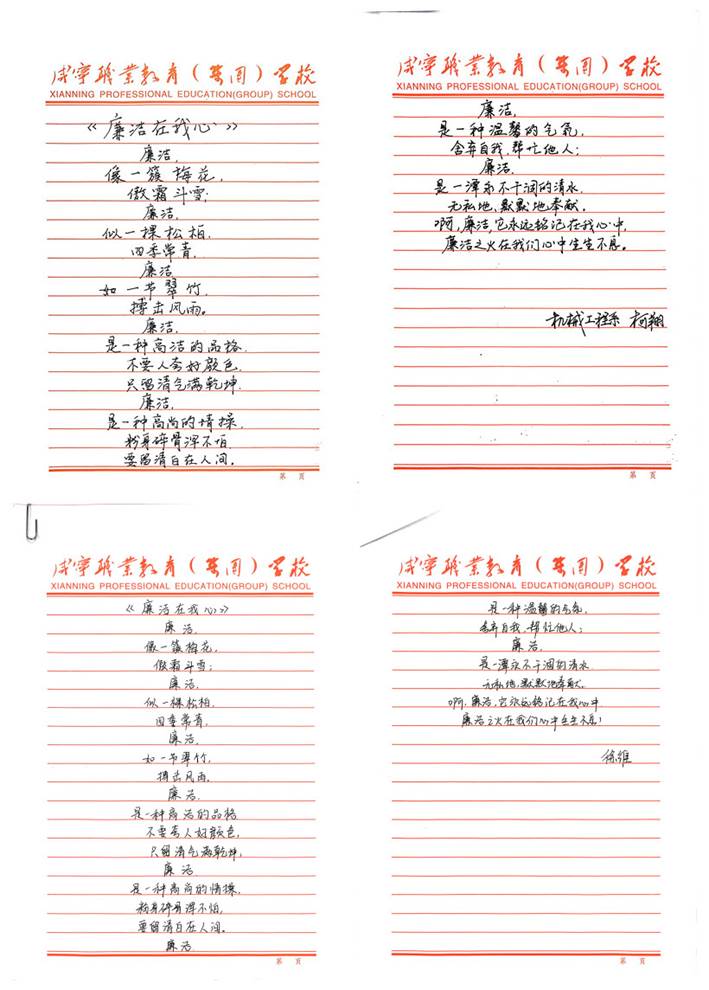 咸宁职业教育（集团）学校
XIANNING PROFESSIONAL EDUCATION(GROUP) SCHOOL
《廉洁在我心》
廉洁,
像一簇梅花,
傲霜斗雪;
廉洁,
似一棵松柏,
四季常青.
廉洁
如一节翠竹.
搏击风雨。
廉洁.
是一种高洁的品格.
不要人夸好颜色.
只留清气满乾坤.
廉洁,
是一种高尚的情操.
粉身碎骨浑不怕
要留清白在人间。
第 页
咸宁职业教育（集团）学校
XIANNING PROFESSIONAL EDUCATION(GROUP) SCHOOL
廉洁,
是一种温馨的气氛,
舍弃自我,帮忙他人;
廉洁.
是一潭永不干涸的清水.
无私地、默默地奉献.
啊,廉洁,它永远铭记在我心中,
廉洁之火在我们心中生生不息。
机械工程系 柯翔
第 页
咸宁职业教育（集团）学校
XIANNING PROFESSIONAL EDUCATION(GROUP) SCHOOL
《廉洁在我心》
廉洁.
像一簇梅花,
傲霜斗雪;
廉洁.
似一棵松柏.
四季常青.
廉洁.
如一节翠竹,
搏击风雨.
廉洁.
是一种高洁的品格
不要夸人好颜色,
只留清气满乾坤,
廉洁.
是一种高尚的情操,
粉身碎骨浑不怕,
要留清白在人间。
廉洁
第 页
咸宁职业教育（集团）学校
XIANNING PROFESSIONAL EDUCATION(GROUP) SCHOOL
是一种温馨的气氛,
舍弃自我,帮忙他人;
廉洁.
是一潭永不干涸的清水
无私地、默默地奉献.
啊,廉洁,它永远铭记在我心中
廉洁之火在我们心中生生不息!
徐维
第 页